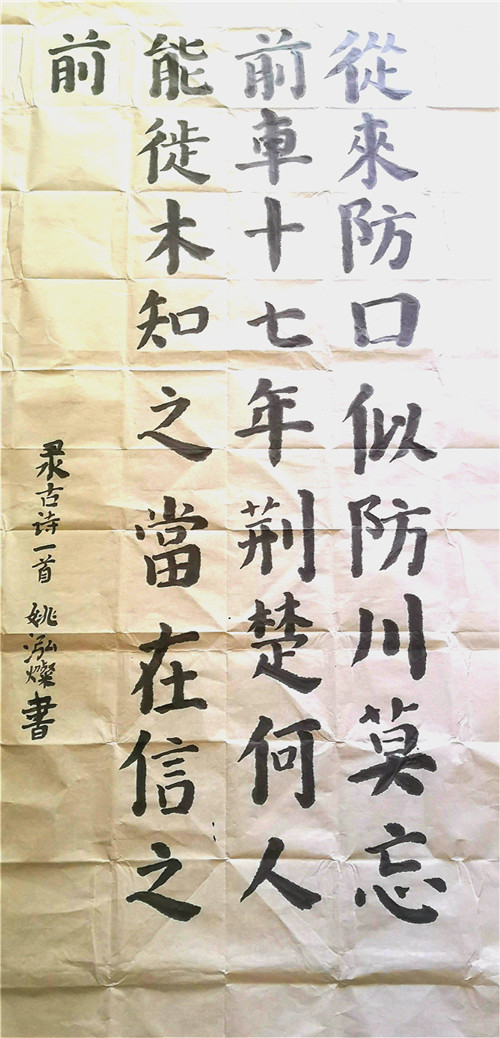 從來防口似防川莫忘
前車十七年荆楚何人
能徙木知之當在信之
前
录古诗一首 姚泓燦書